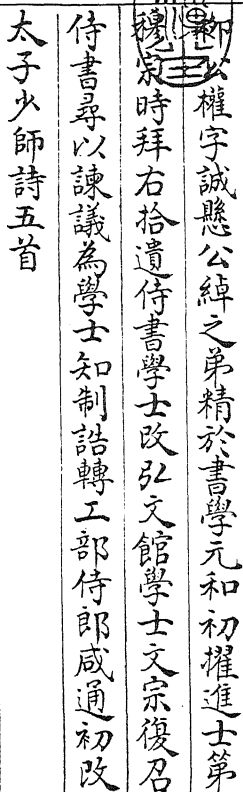 柳公權字誠懸公綽之弟精於書學元和初擢進士第
穆宗時拜右拾遺侍書學士改弘文館學士文宗復召
侍書尋以諫議為學士知制誥轉工部侍郎咸通初改
太子少師詩五首